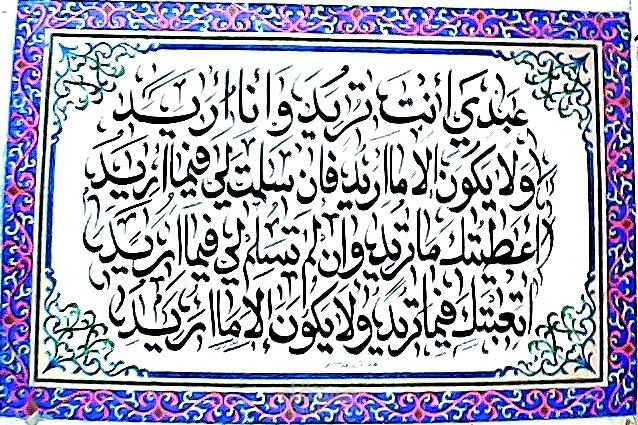 عبدي أنت تريد وأنا أريد
ولا يكون إلا ما أريد فإن سلمت لي فيما أريد
أعطيتك ما تريد وإن لم تسلم لي فيما أريد
أتعبتك فيما تريد ولا يكون إلا ما أريد